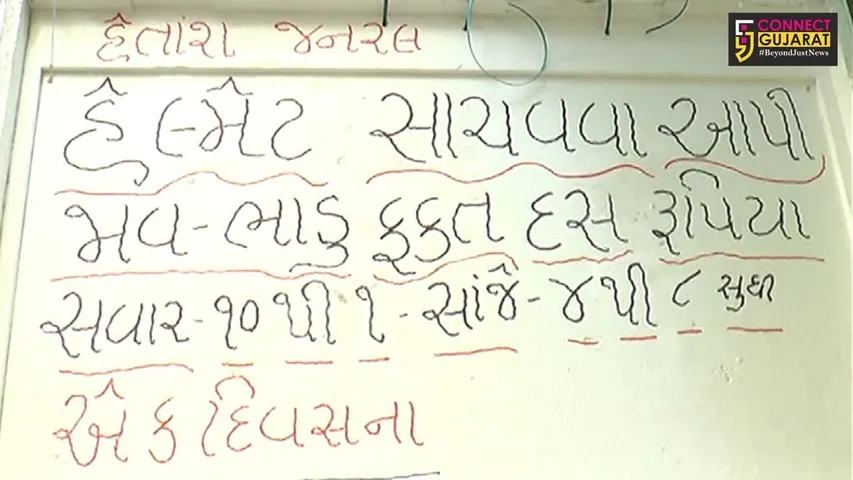 હેતાંશ જનરલ
CONNECT
GUJARAT
#BeyondJustNews
હેલ્મેટ સાચવવા આપી
જાવ-ભાડુ ફકત દસ રૂપિયા
સવાર-૧૦ થી ૧-સાંજે-૪ થી ૮ સુધી
એક દિવસના